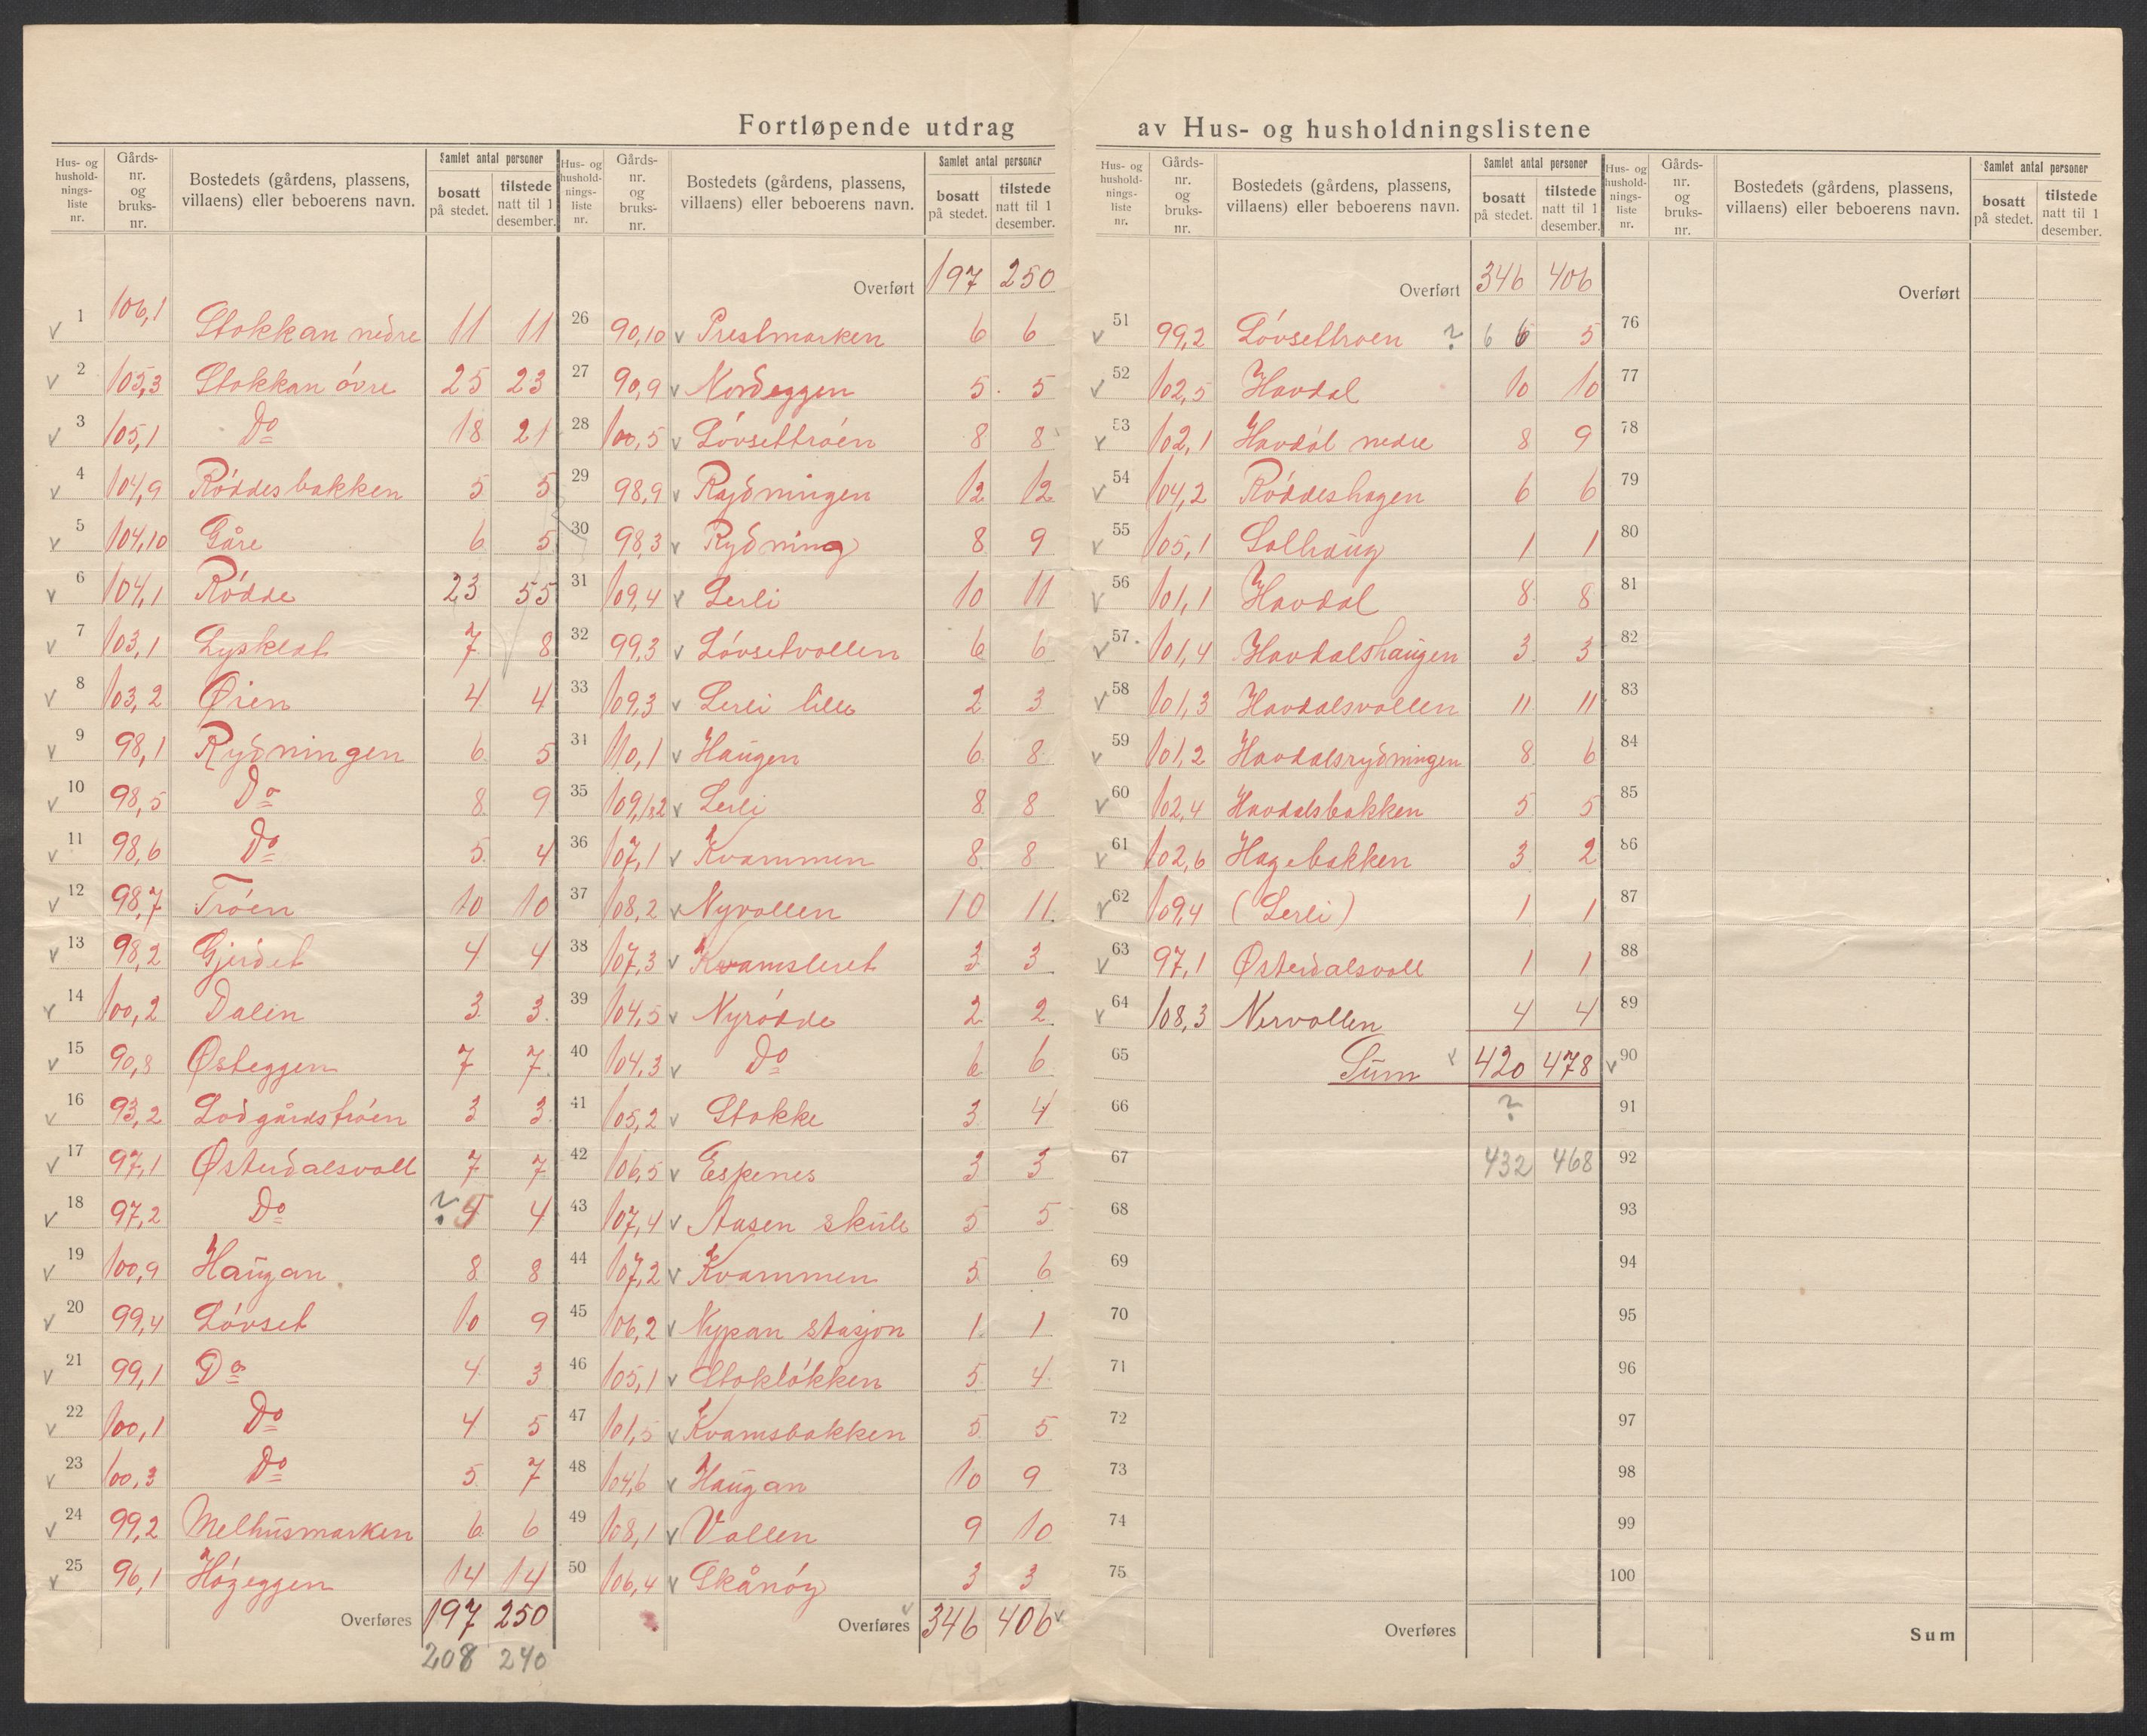 Fortløpende utdrag av Hus- og husholdningslistene
Hus- og hushold-nings-liste nr. | Gårds-nr. og bruks-nr. | Bostedets (gårdens, plassens, villaens) eller beboerens navn. | Samlet antal personer | bosatt på stedet. | tilstede natt til 1 desember.
1 106,1 Stokkan nedre 11 11
2 105,3 Stokkan óvre 25 23
3 105,1 Do 18 21
4 104,9 Róddesbakken 5 5
5 104,10 Gåre 6 5
6 104,1 Ródde 23 55
7 103,1 Lysklet 7 8
8 103,2 Øien 4 4
9 98,1 Rydningen 6 5
10 98,5 Do 8 9
11 98,6 Do 5 4
12 98,7 Tróen 10 10
13 98,2 Gjerdet 4 4
14 100,2 Dalen 3 3
15 90,8 Østeggen 7 7
16 93,2 Lodgårdstróen 3 3
17 97,1 Østerdalsvoll 7 7
18 97,2 Do ? 4 4
19 100,9 Haugan 8 8
20 99,4 Lóvset 10 9
21 99,1 Do 4 3
22 100,1 Do 4 5
23 100,3 Do 5 7
24 99,2 Melhusmarken 6 6
25 96,1 Hógeggen 14 14
Overføres 197 250
208 240
Hus- og hushold-nings-liste nr. | Gårds-nr. og bruks-nr. | Bostedets (gårdens, plassens, villaens) eller beboerens navn. | Samlet antal personer | bosatt på stedet. | tilstede natt til 1 desember.
Overført 197 250
26 90,10 Prestmarken 6 6
27 90,9 Nordeggen 5 5
28 100,5 Lóvsettróen 8 8
29 98,9 Rydningen 12 12
30 98,3 Rydning 8 9
31 109,4 Lerli 10 11
32 99,3 Lóvsetvollen 6 6
33 109,3 Lerli lille 2 3
34 110,1 Haugen 6 8
35 109,1,2 Lerli 8 8
36 107,1 Kvammen 8 8
37 108,2 Nyvollen 10 11
38 107,3 Kvamsleret 3 3
39 104,5 Nyródde 2 2
40 104,3 Do 6 6
41 105,2 Stokke 3 4
42 106,5 Espenes 3 3
43 107,4 Aasen skule 5 5
44 107,2 Kvammen 5 6
45 106,2 Nypan stasjon 1 1
46 105,1 Stoklókken 5 4
47 101,5 Kvamsbakken 5 5
48 104,6 Haugan 10 9
49 108,1 Vollen 9 10
50 106,4 Skånóy 3 3
Overføres 346 406
Hus- og hushold-nings-liste nr. | Gårds-nr. og bruks-nr. | Bostedets (gårdens, plassens, villaens) eller beboerens navn. | Samlet antal personer | bosatt på stedet. | tilstede natt til 1 desember.
Overført 346 406
51 99,2 Lóvsettroen ? 6 6 5
52 102,5 Havdal 10 10
53 102,1 Havdal nedre 8 9
54 104,2 Róddeshagen 6 6
55 105,1 Solhaug 1 1
56 101,1 Havdal 8 8
57 101,4 Havdalshaugen 3 3
58 101,3 Havdalsvollen 11 11
59 101,2 Havdalsrydningen 8 6
60 102,4 Havdalsbakken 5 5
61 102,6 Hagebakken 3 2
62 109,4 (Lerli) 1 1
63 97,1 Østerdalsvoll 1 1
64 108,3 Nervollen 4 4
65 Sum 420 478
66 ?
67 432 468
68
69
70
71
72
73
74
75
Overføres
Hus- og hushold-nings-liste nr. | Gårds-nr. og bruks-nr. | Bostedets (gårdens, plassens, villaens) eller beboerens navn. | Samlet antal personer | bosatt på stedet. | tilstede natt til 1 desember.
Overført
76
77
78
79
80
81
82
83
84
85
86
87
88
89
90
91
92
93
94
95
96
97
98
99
100
Sum